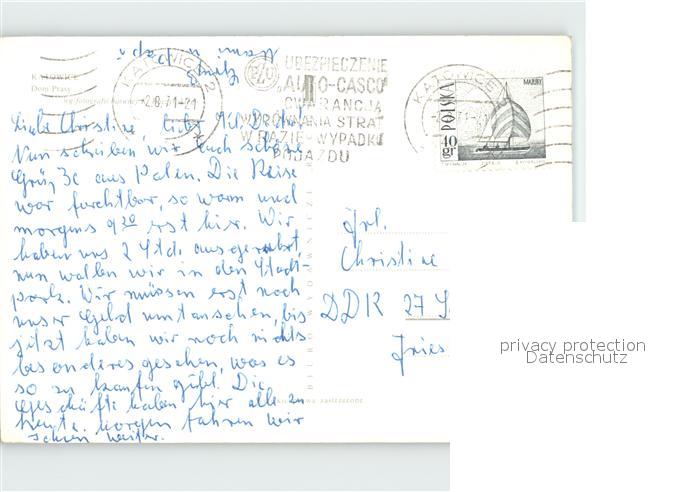 KATOWICE
Dom Prasy
KATOWICE 2
-2.8.71-21
PZU
UBEZPIECZENIE
„AUTO-CASCO"
GWARANCJĄ
WYRÓWNANIA STRAT
W RAZIE WYPADKU
POJAZDU
KATOWICE
POLSKA
MAZURY
10 gr
Liebe Christine, liebe
Nun schreiben wir Euch schöne
Grüße aus Polen. Die Reise
war furchtbar, so warm und
morgens 9 20 erst hier. Wir
haben uns 2 Std. ausgeruht,
nun wollen wir in den Stadt-
park. Wir müssen erst noch
unser Geld umtauschen, bis
jetzt haben wir noch nichts
besonderes gesehen, was es
so zu kaufen gibt. Die
Geschäfte haben hier alle zu
heute. Morgen fahren wir
schon weiter.
Mami u. Papi
Frl.
Christine
DDR 27 S
Fries
BIURO WYDAWNICZE
zastrzeżone
privacy protection
Datenschutz